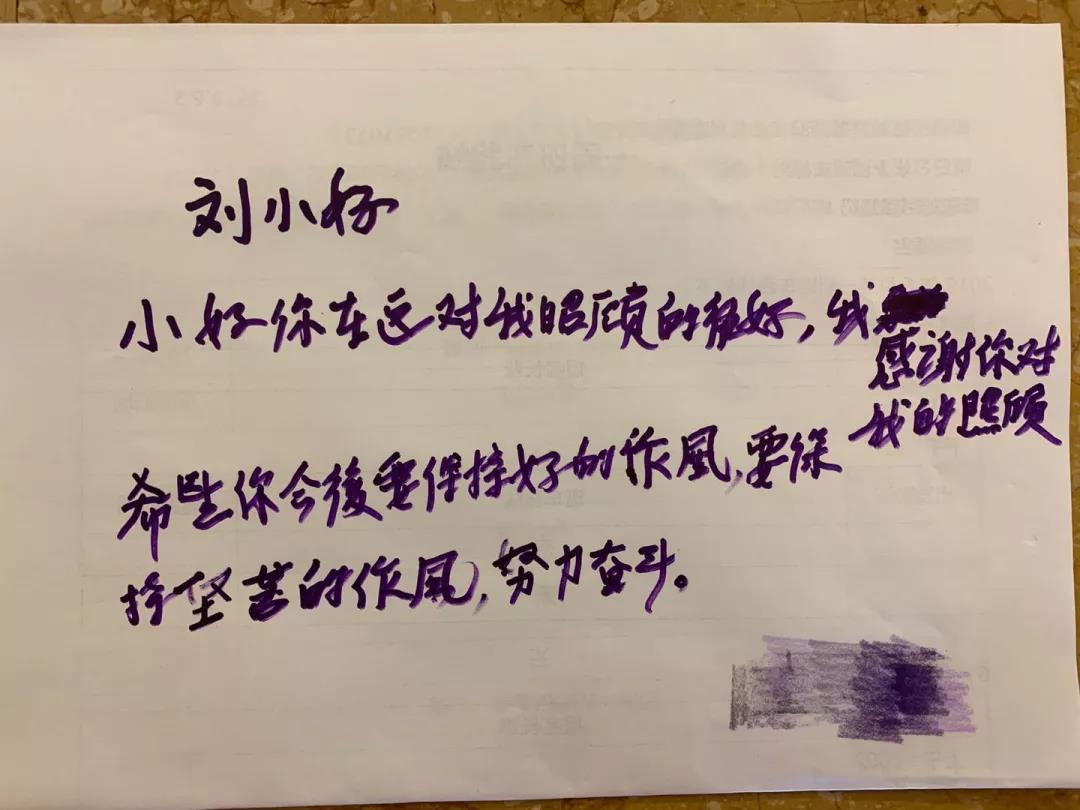 刘小好
小好你在这对我照顾的很好，我
感谢你对
我的照顾
希望你今後要保持好的作風，要保
持坚苦的作風，努力奋斗。